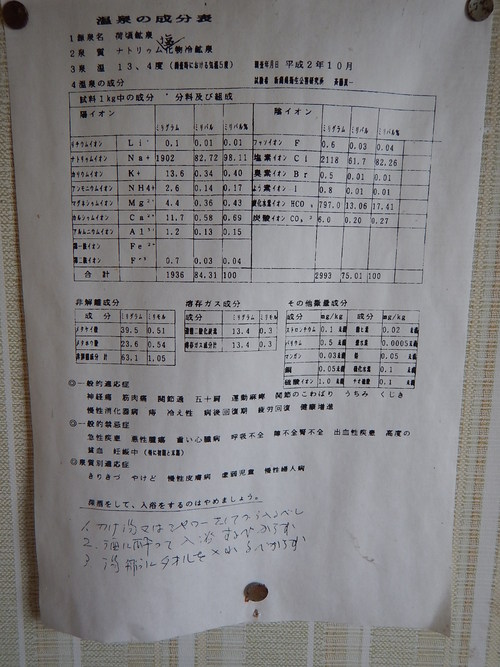 温泉の成分表
1 源泉名 荷頃鉱泉
2 泉 質 ナトリゥム塩化物冷鉱泉
3 泉 温 13、4度（ 調査時における気温5度） 調査年月日 平成2年10月
4 温泉の成分
試料1kg中の成分 分料及び組成
陽イオン 陰イオン
ミリグラム ミリバル ミリバル% ミリグラム ミリバル ミリバル%
リチウムイオン Li 0.1 0.01 0.01 F 0.6 0.03 0.04
ナトリゥムイオン Na+ 1902 82.72 98.11 塩素イオン Cl 2118 61.7 82.26
カリウムイオン K+ 13.6 0.34 0.40 臭素イオン Br 0.5 0.01 0.01
アンモニウムイオン NH4+ 2.6 0.14 0.17 よう素イオン I 0.8 0.01 0.01
マグネシゥムイオン Mg 4.4 0.36 0.43 炭酸水素イオン HCO3 797.0 13.06 17.41
カルシゥムイオン Ca 11.7 0.58 0.69 炭酸イオン CO3 6.0 0.20 0.27
アルムニウムイオン Al 1.2 0.13 0.15
第一鉄イオン Fe
第二鉄イオン 0.7 0.03 0.04
合計 1936 84.31 100 2993 75.01 100
非解離成分 溶存ガス成分 その他微量成分
成 分 ミリグラム ミリモル 成分 ミリグラム ミリモル 成分 mg/kg mg/kg
メタケイ酸 39.5 0.51 遊離二酸化炭素 13.4 0.3 ストロンチウム 0.1 未満 0.02 未満
メタホウ酸 23.6 0.54 溶存ガス成分計 13.4 0.3 バリウム 0.5 未満 総水銀 0.0005未満
非解離成分 計 63.1 1.05 マンガン 0.03未満 鉛 0.05 未満
銅 0.05未満 硫化水素 0.1 未満
硫酸イオン 1.0 未満 チオ硫酸 0.1 未満
◎一般的適応症
神経痛 筋肉痛 関節通 五十肩 運動麻痺 関節のこわばり うちみ くじき
慢性消化器病 痔 冷え性 病後回復期 疲労回復 健康増進
◎一般的禁忌症
急性疾患 悪性腫瘍 重い心臓病 呼吸不全 腎不全 出血性疾患 高度の
貧血 妊娠中（特に初期と末期）
◎泉質別適応症
きりきづ やけど 慢性皮膚病 虚弱児童 慢性婦人病
飲酒をして、入浴をするのはやめましょう。
1. かけ湯又はシャワーを
2. 酒に酔って入浴するべからず
3. 湯船にタオルを べからず